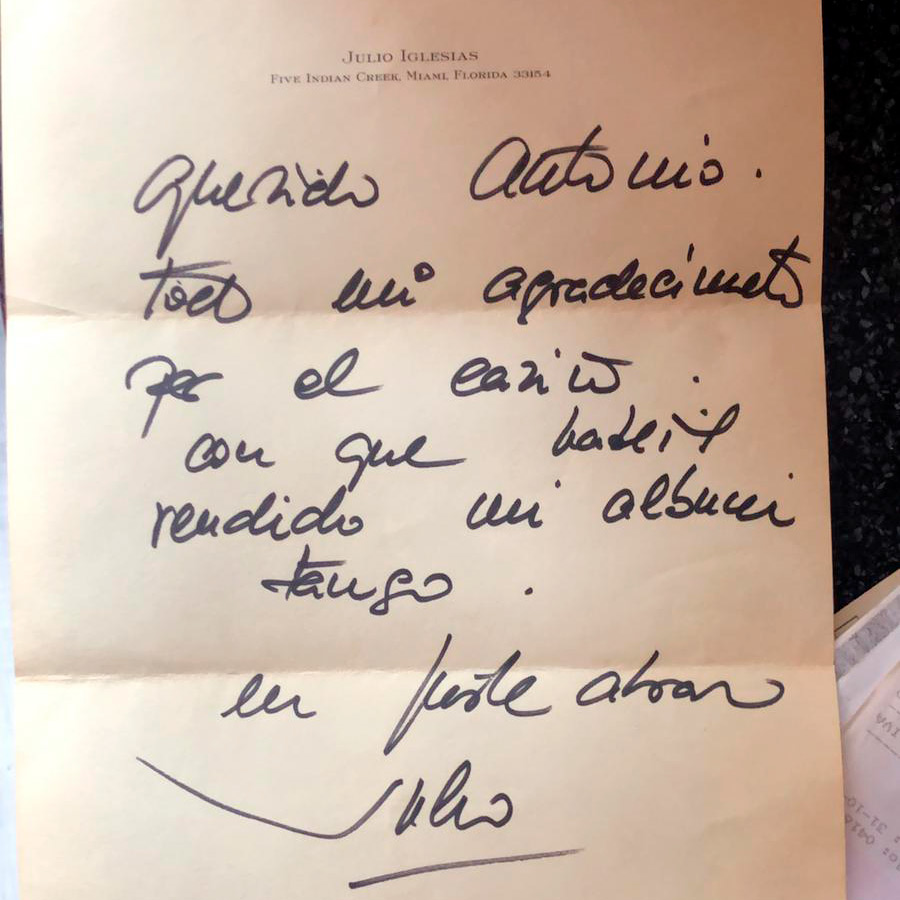 JULIO IGLESIAS
FIVE INDIAN CREEK, MIAMI, FLORIDA 33154
Querido Antonio.
todo mi agradecimeto
por el cariño.
con que habeis
rendido mi album
tango.
un fuerte abrazo
Julio
IVA